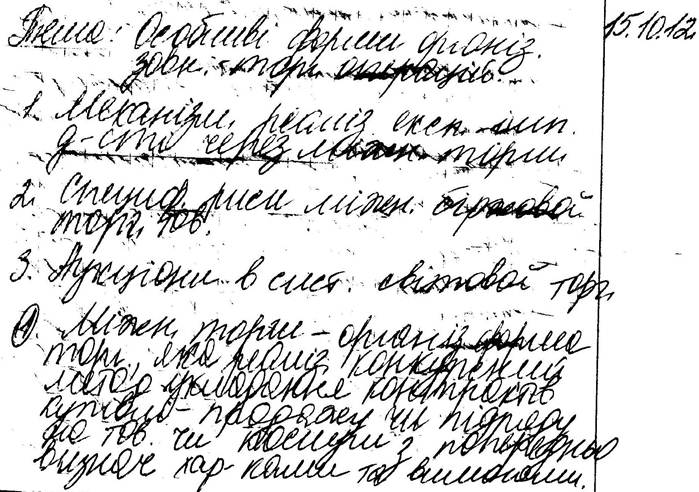 Тема: Особливі форми організ. 15.10.12.
зовн. торг. операцій.
1. Механізм реаліз. експ.-імп.
д-сті через міжн. торги
2. Специф. риси міжн. біржової
торг. тов.
3. Аукціони в сист. світовой торг.
1. Міжн. торги – організ. форма
торг., яка реаліз. конкурентний
метод укладання контрактів
купівлі-продажу чи підряду
на тов. чи послуги з попередньо
визнач. хар-ками та вимогами.